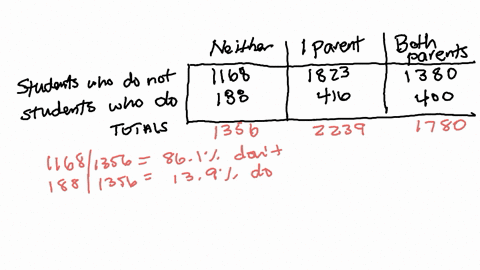 Neither 1 Parent Both parents
Students who do not 1168 1823 1380
students who do 188 416 400
TOTALS 1356 2239 1780
1168/1356 = 86.1% don't
188/1356 = 13.9% do